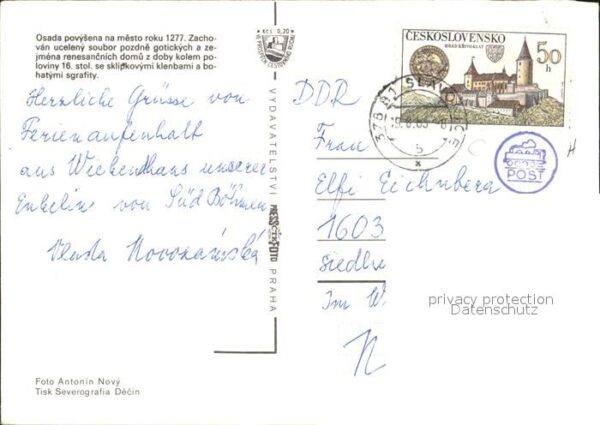 Osada povýšena na město roku 1277. Zacho-
ván ucelený soubor pozdně gotických a ze-
jména renesančních domů z doby kolem po-
loviny 16. stol. se sklípkovými klenbami a bo-
hatými sgrafity.
Herzliche Grüsse von
Ferienaufenhalt
aus Wickendhaus unserer
Enkelin von Süd Böhmen
Vlasta
Foto Antonín Nový
Tisk Severografia Děčín
Kčs 0,20
VYDAVATELSTVÍ PRESSFOTO PRAHA
ČESKOSLOVENSKO
HRAD KŘIVOKLÁT
50 h
378 81 SLAVONICE
b
POST
DDR
Frau
Elfi Eichnberg
1603
Siedlu
Im W.
N
privacy protection
Datenschutz